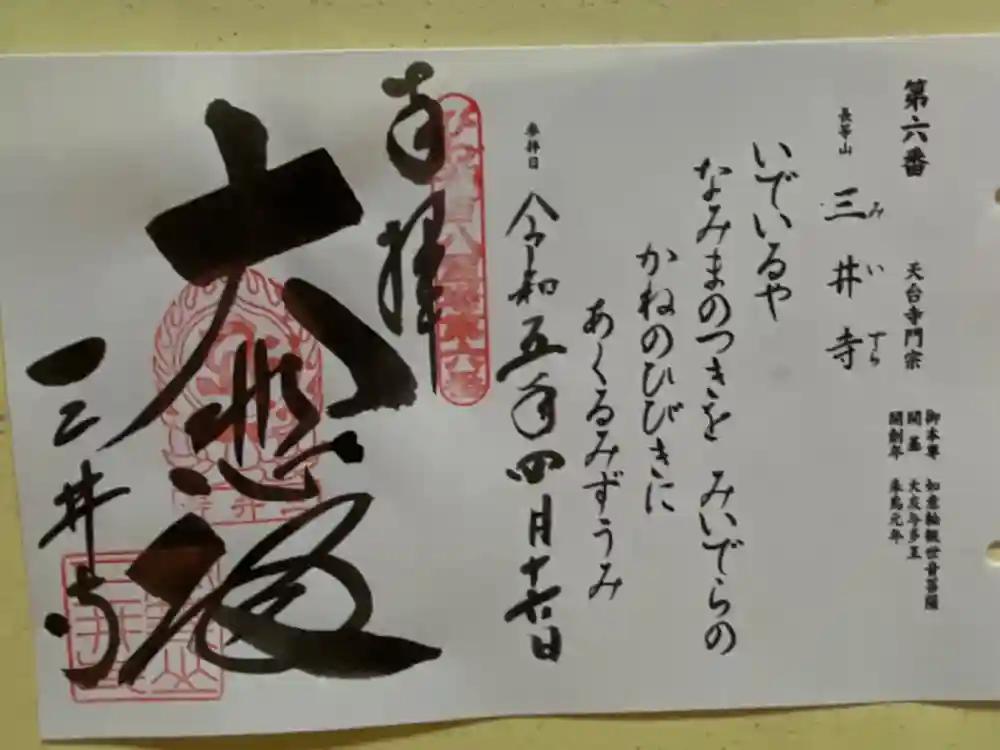 第六番 天台寺門宗
御本尊 如意輪観世音菩薩
開基 大友与多王
開創年 朱鳥元年
長等山 三井寺
みいでら
いでいるや
なみまのつきを みいでらの
かねのひびきに
あくるみずうみ
参拝日 令和五年四月十六日
奉拝
大悲殿
三井寺